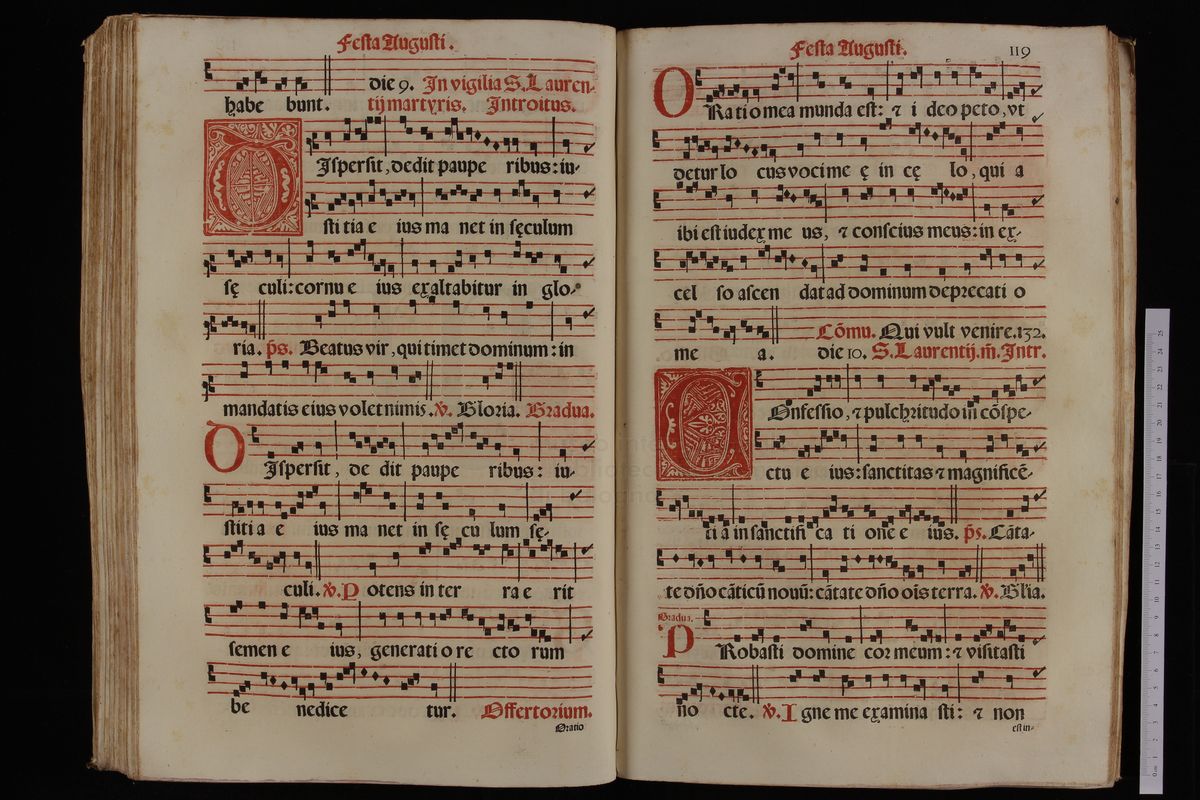 Festa Augusti.
die 9. In vigilia S. Lauren-
habe bunt. tij martyris. Introitus.
DIspersit, dedit paupe ribus: iu-
sti tia e ius ma net in sęculum
sę culi: cornu e ius exaltabitur in glo-
ria. p̄s. Beatus vir, qui timet dominum: in
mandatis eius volet nimis. ℣. Gloria. Gradua.
DIspersit, de dit paupe ribus: iu-
stiti a e ius ma net in sę cu lum sę-
culi. ℣. P otens in ter ra e rit
semen e ius, generati o re cto rum
be nedice tur. Offertorium.
Oratio
Festa Augusti. 119
ORa ti o mea munda est: ⁊ i deo peto, vt
detur lo cus voci me ę in cę lo, qui a
ibi est iudex me us, ⁊ conscius meus: in ex-
cel so ascen dat ad dominum deprecati o
Cōmu. Qui vult venire. 132.
me a. die 10. S. Laurentij. m̄. Intr.
COnfessio, ⁊ pulchritudo in cōspe-
ctu e ius: sanctitas ⁊ magnificē-
ti a in sanctifi ca ti one e ius. p̄s. Cāta-
te dn̄o cāticū nouū: cātate dn̄o ois terra. ℣. Gl'ia.
Gradua.
PRobasti domine cor meum: ⁊ visitasti
no cte. ℣. I gne me examina sti: ⁊ non
est in-